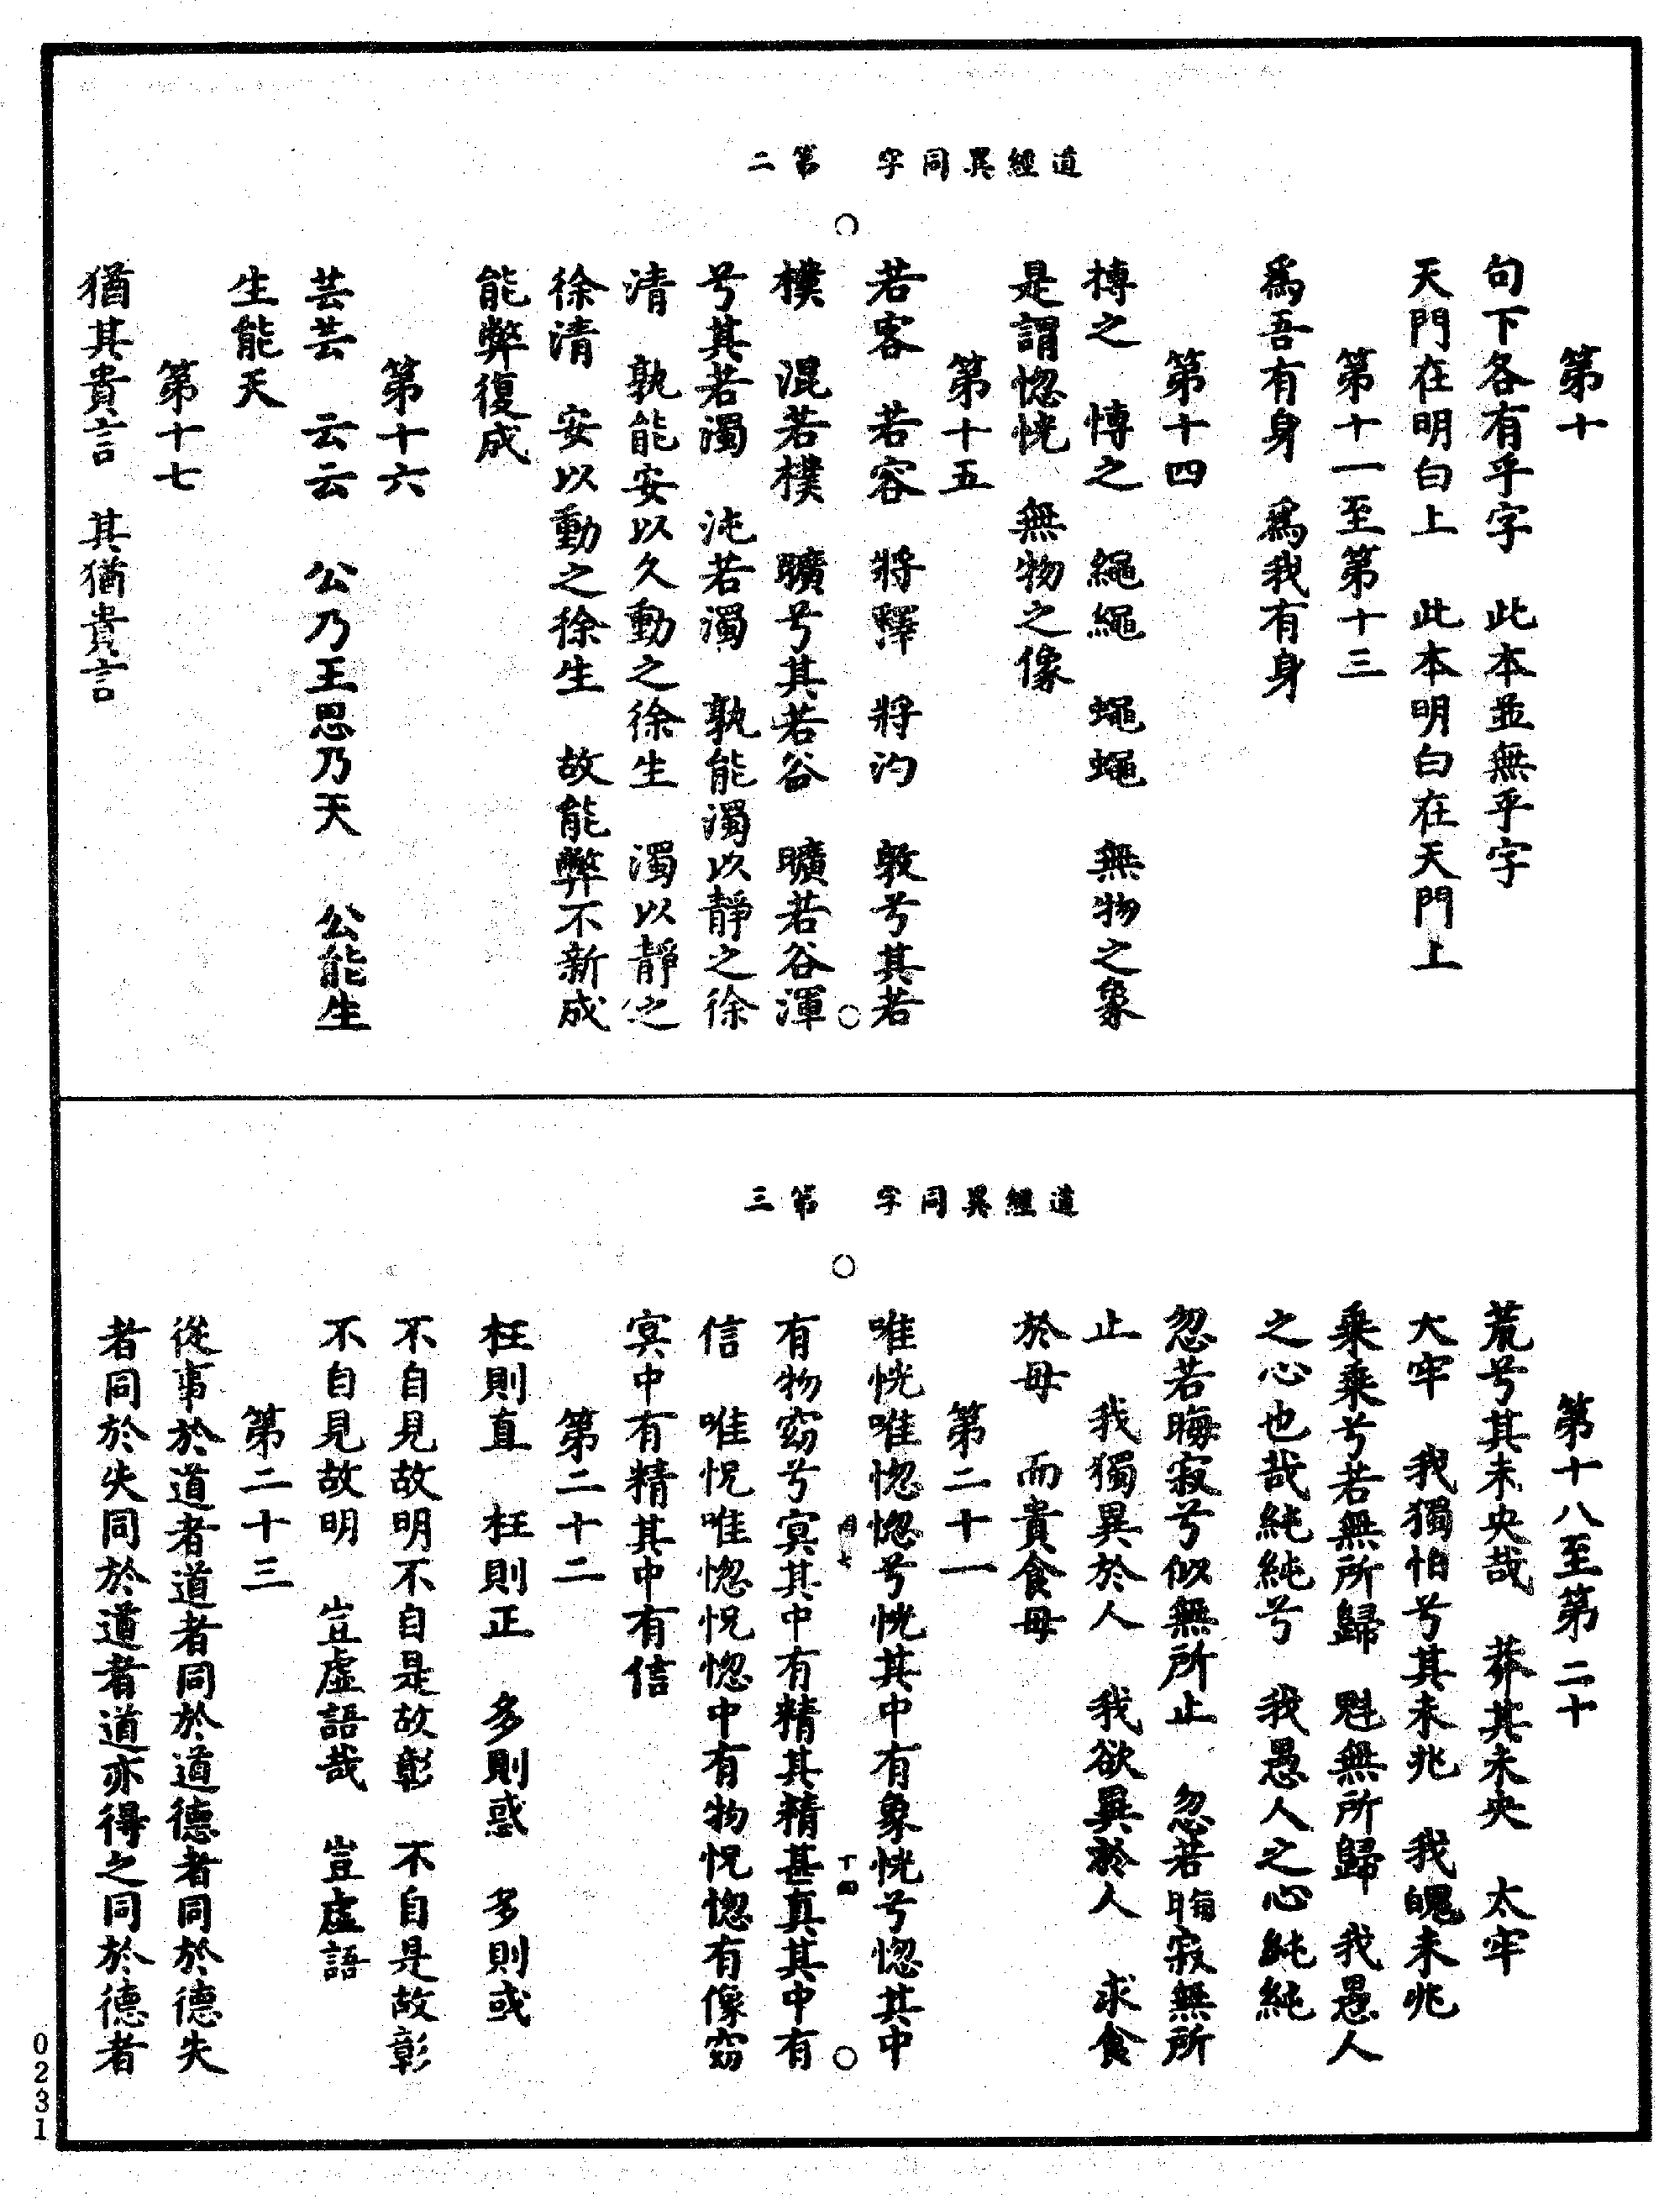 道經異同字　第二
第十
句下各有乎字　此本並無乎字
天門在明白上　此本明白在天門上
第十一至第十三
爲吾有身　爲我有身
第十四
搏之　慱之　繩繩　蠅蠅　無物之象
是謂惚恍　無物之像
第十五
若客　若容　將釋　將汋　敦兮其若
樸　混若樸　曠兮其若谷　曠若谷渾
兮其若濁　沌若濁　孰能濁以靜之徐
清　孰能安以久動之徐生　濁以靜之
徐清　安以動之徐生　故能弊不新成
能弊復成
第十六
芸芸　云云　公乃王思乃天　公能生
生能天
第十七
猶其貴言　其猶貴言
道經異同字　第三
第十八至第二十
荒兮其未央哉　莽其未央　太牢
大牢　我獨怕兮其未兆　我魄未兆
乘乘兮若無所歸　魁無所歸　我愚人
之心也哉純純兮　我愚人之心純純
忽若晦寂兮似無所止　忽若晦寂無所
止　我獨異於人　我欲異於人　求食
於母　而貴食母
第二十一
唯恍唯惚惚兮恍其中有象恍兮惚其中
有物窈兮冥其中有精其精甚真其中有
信　唯怳唯惚怳惚中有物怳惚有像窈
冥中有精其中有信
第二十二
枉則直　枉則正　多則惑　多則或
不自見故明不自是故彰　不自是故彰
不自見故明　豈虛語哉　豈虛語
第二十三
從事於道者道者同於道德者同於德失
者同於失同於道者道亦得之同於德者
0231